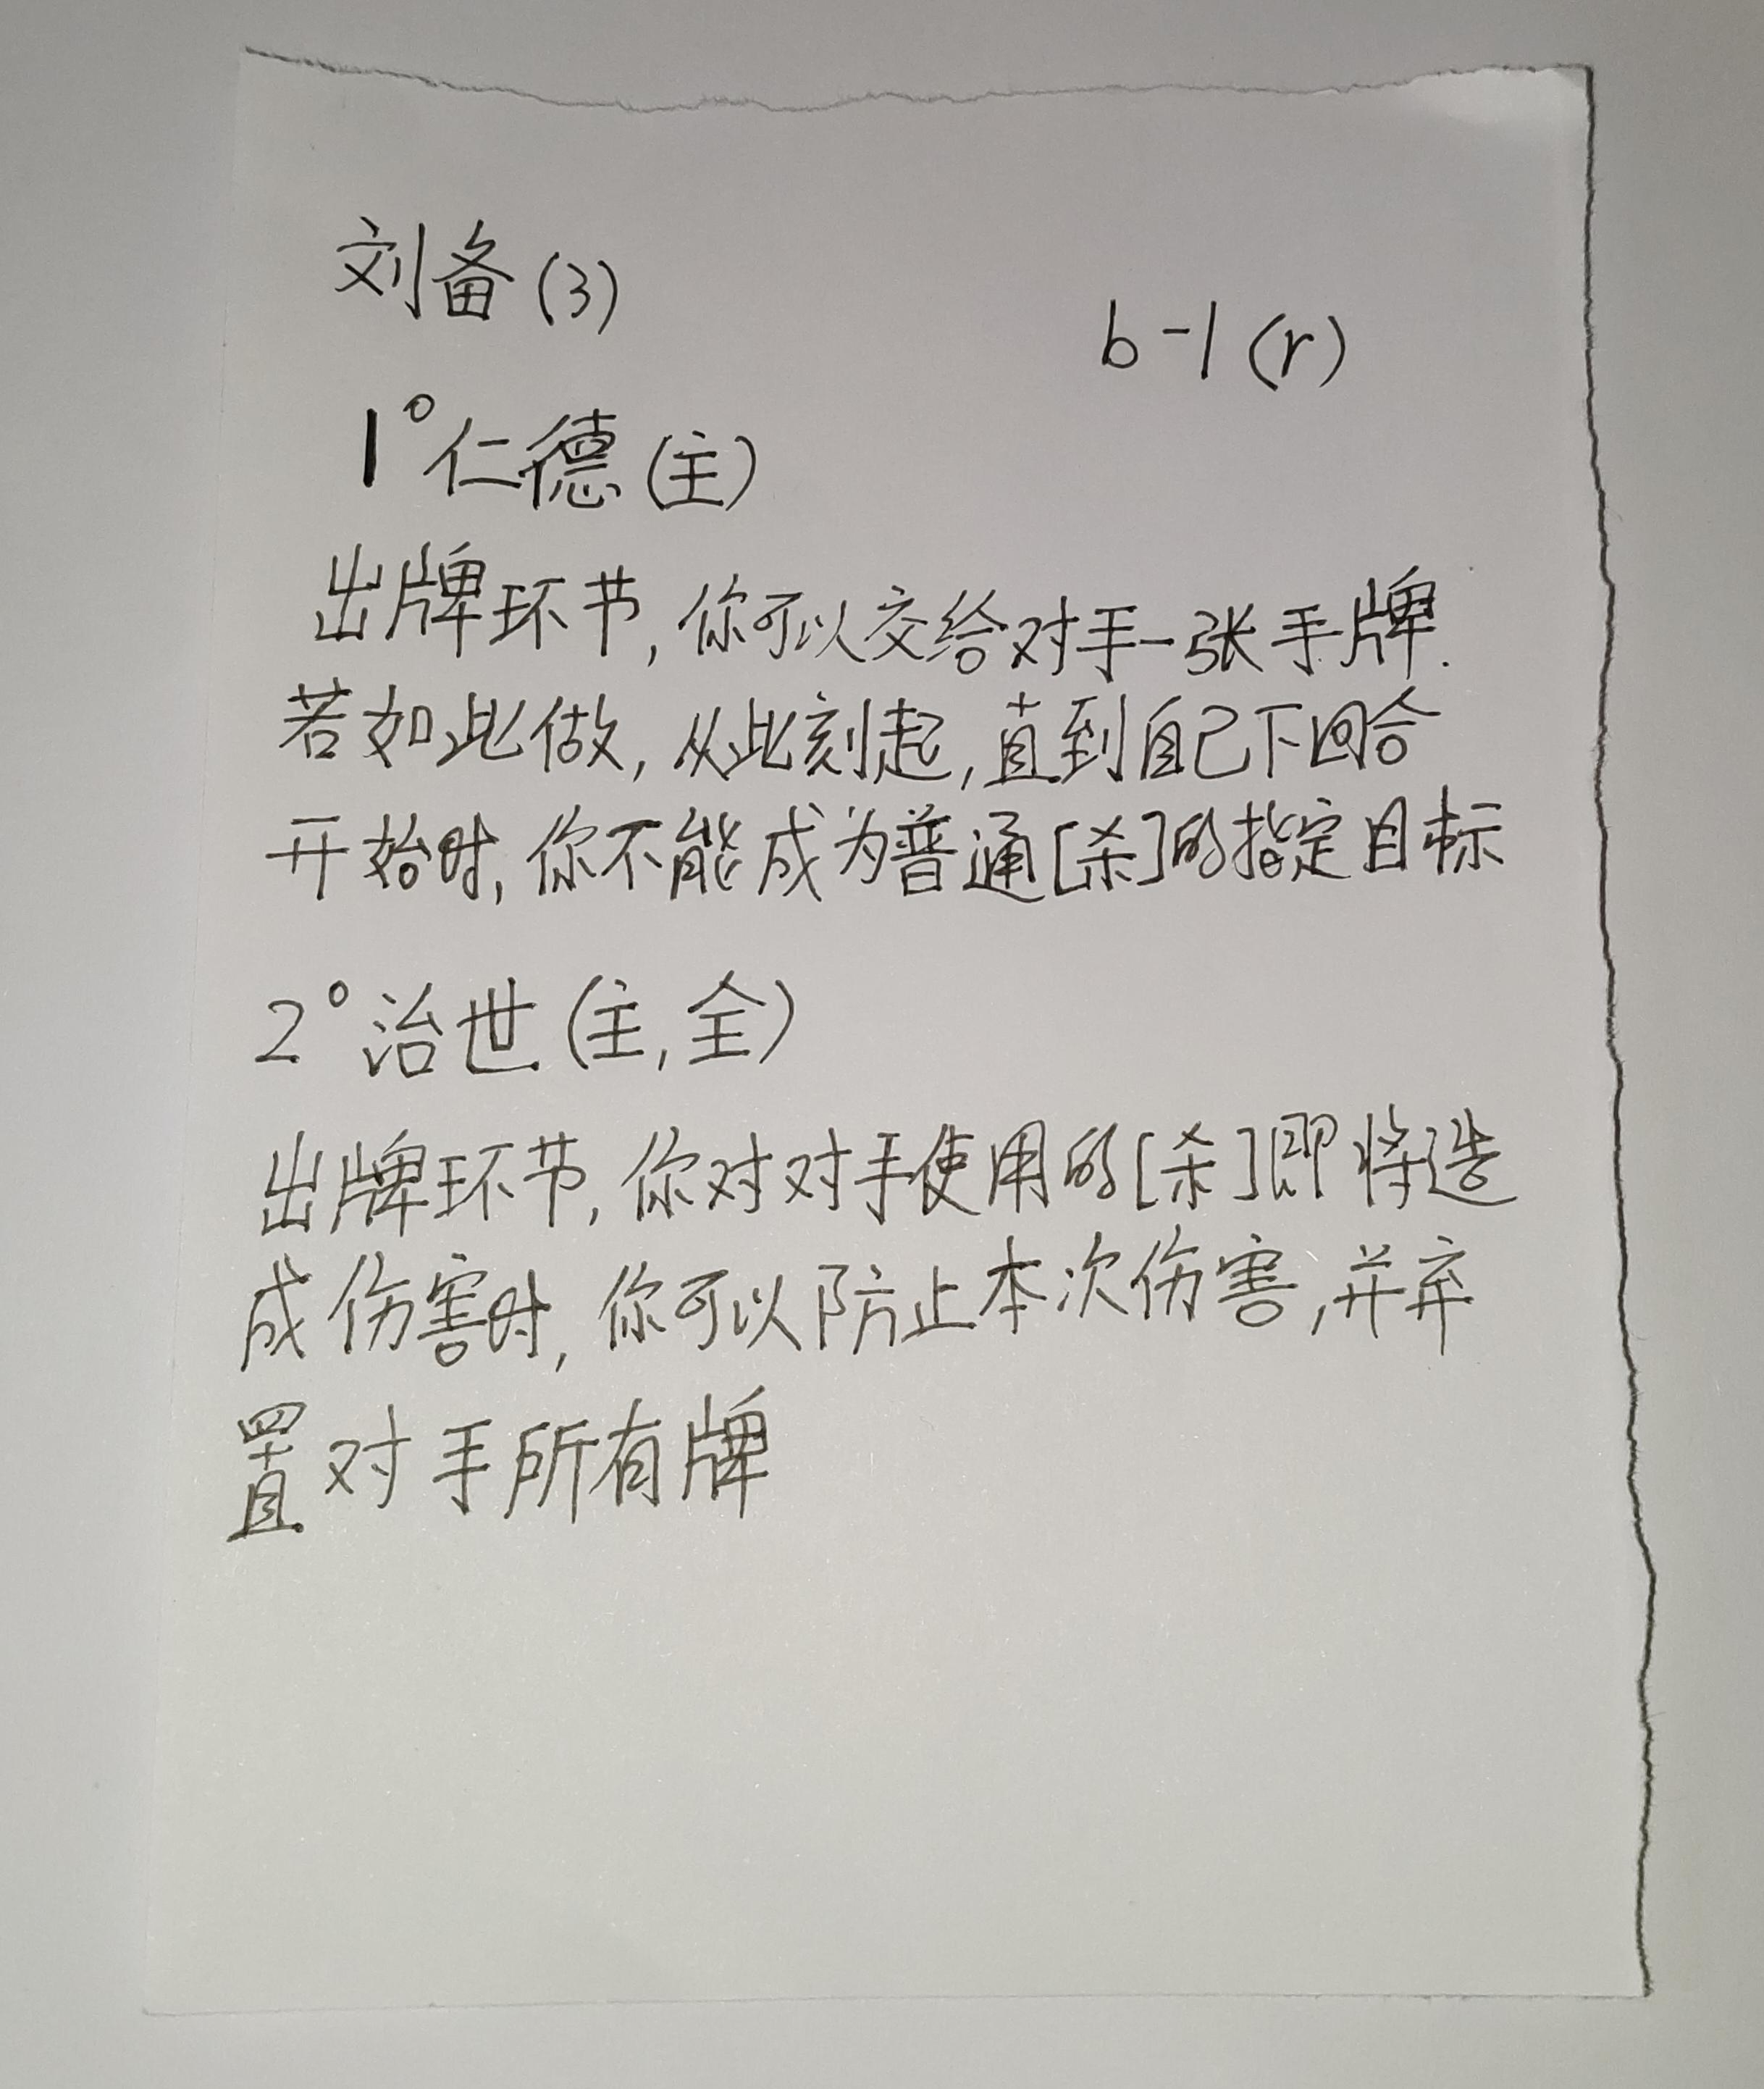 刘备(3)
b-1(r)
1°仁德(主)
出牌环节,你可以交给对手一张手牌.
若如此做,从此刻起,直到自己下回合
开始时,你不能成为普通[杀]的指定目标
2°治世(主,全)
出牌环节,你对对手使用的[杀]即将造
成伤害时,你可以防止本次伤害,并弃
置对手所有牌